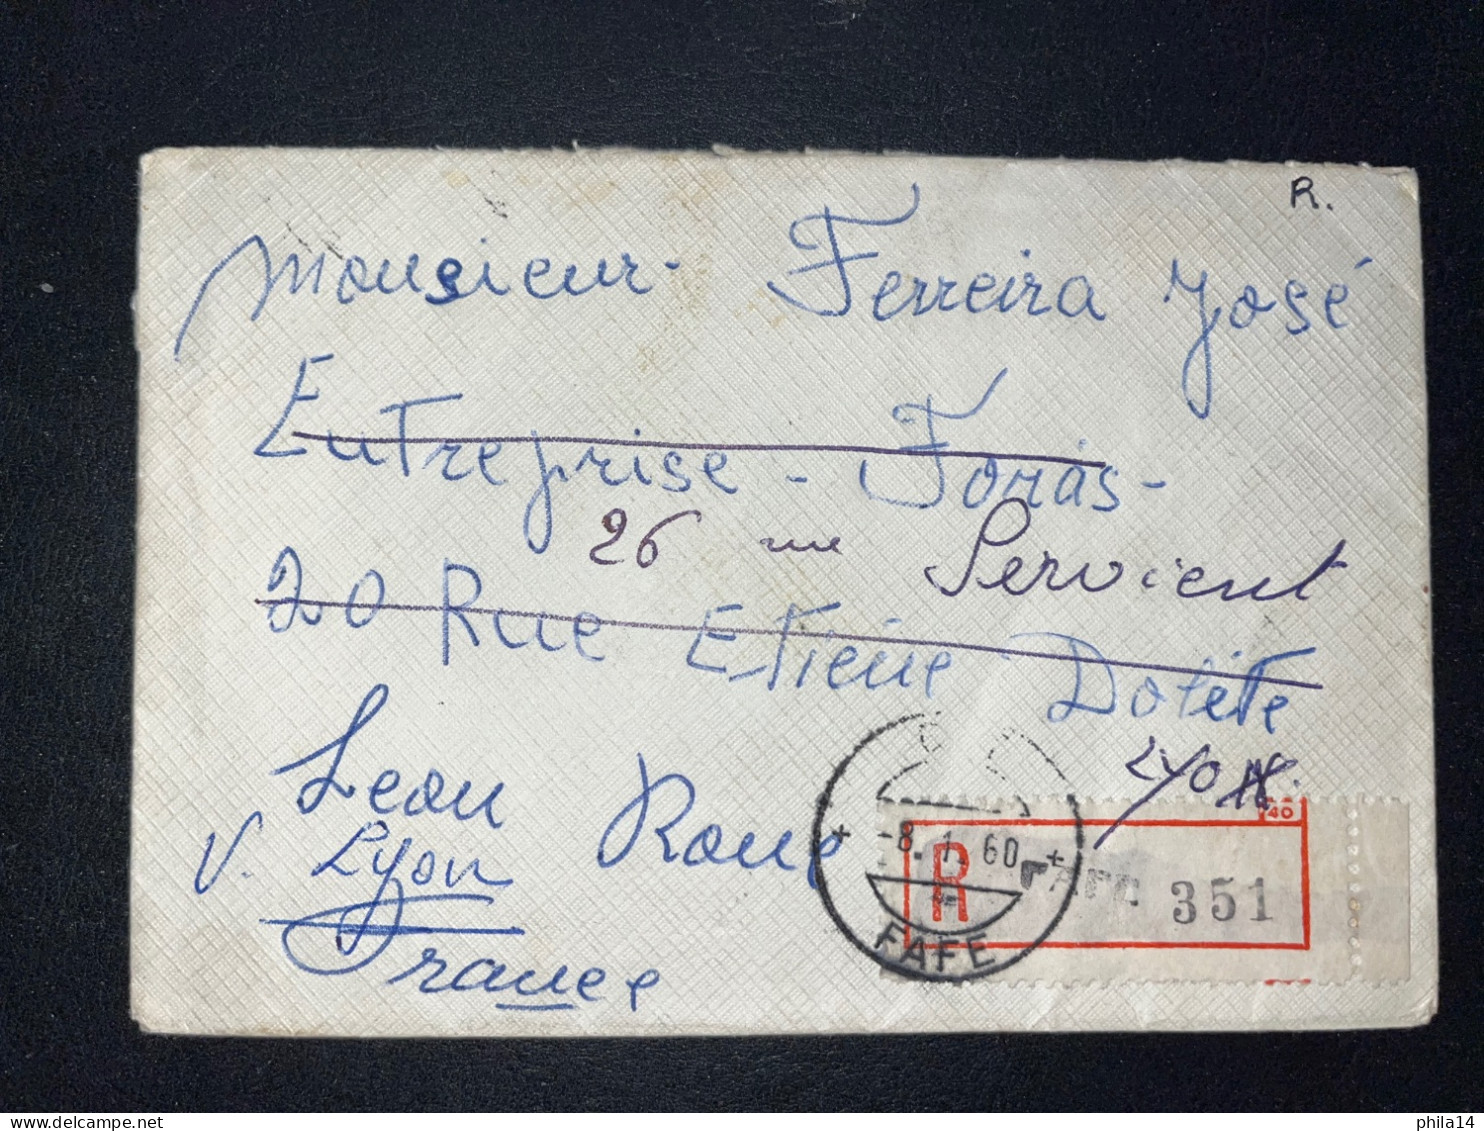 R.
Monsieur Ferreira José
Entreprise - Forás -
26 rue Servient
20 Rue Etiene Dolete
Lyon
Leon Roup
V. Lyon
France
-8. 1. 60
FAFE
R
351
40
phila14